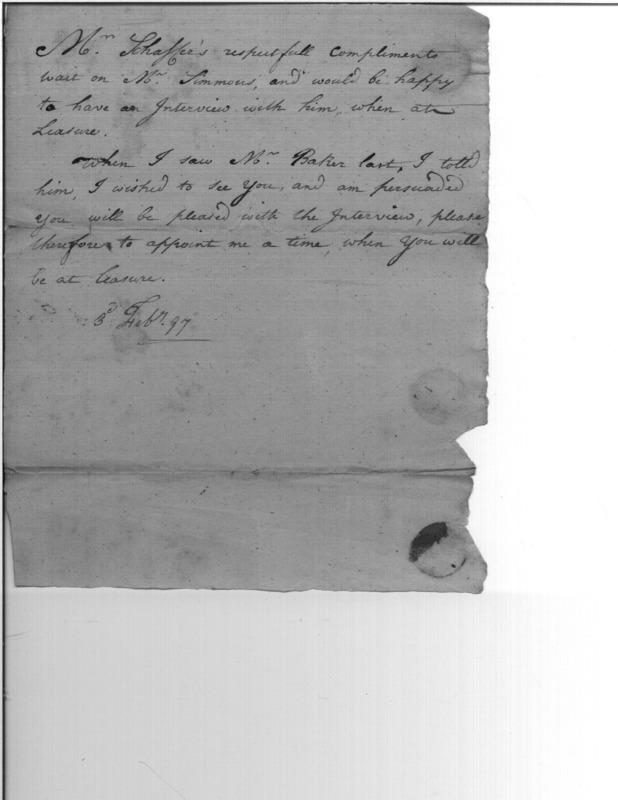 Mr. Schaffer's respectfull compliments
wait on Mr. Simmons, and would be happy
to have an Interview with him, when at
Leasure.
When I saw Mr. Baker last, I totld
him, I wished to see You, and am persuaded
You will be pleased with the Interview, please
therefore to appoint me a time, when You will
be at leasure.
3d Febr. 97